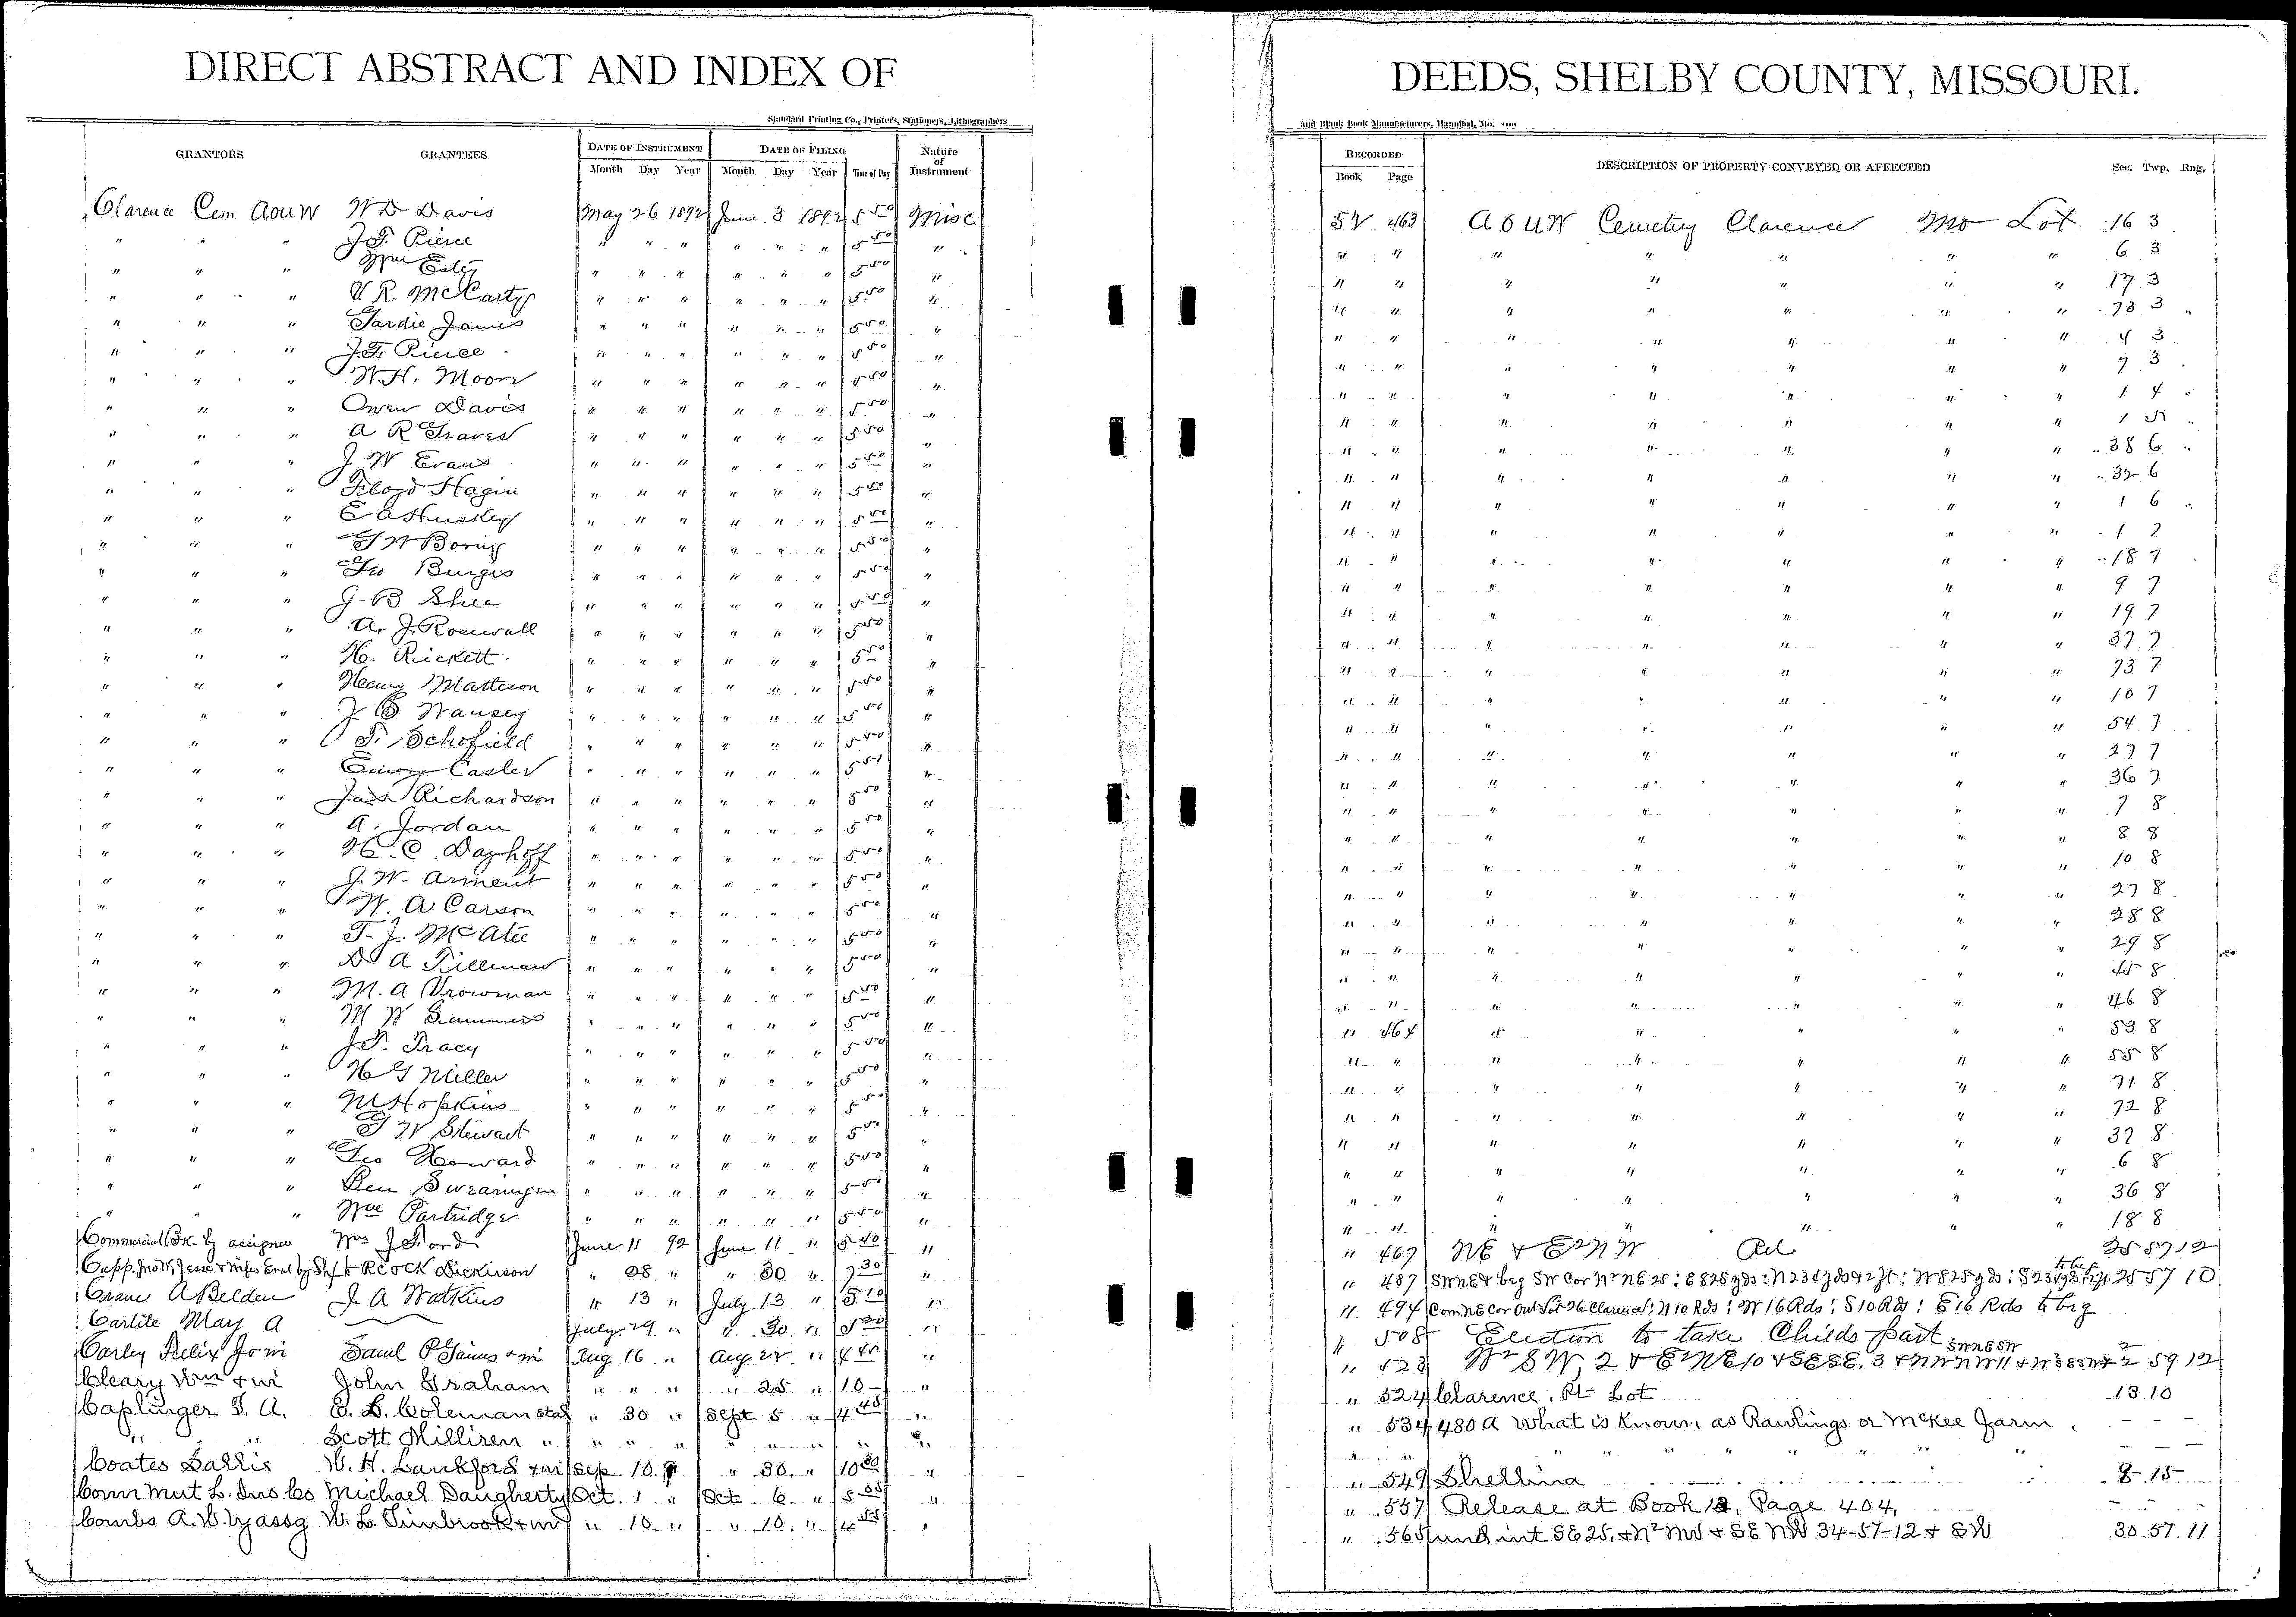 DIRECT ABSTRACT AND INDEX OF
Standard Printing Co., Printers, Stationers, Lithographers
GRANTORS GRANTEES DATE OF INSTRUMENT DATE OF FILING Nature of Instrument
Month Day Year Month Day Year Time of Day
Clarence Cem AOUW W D Davis May 26 1892 June 3 1892 5 50 Misc
" " " J. F. Pierce " " " " " " 5 50 "
" " " Wm " " " " " " 5 50 "
" " " V R. McCarty " " " " " " 5 50 "
" " " Tardie James " " " " " " 5 50 "
" " " J. F. Pierce " " " " " " 5 50 "
" " " W. H. Moore " " " " " " 5 50 "
" " " Owen Davis " " " " " " 5 50 "
" " " A R Graves " " " " " " 5 50 "
" " " J W Evans " " " " " " 5 50 "
" " " Floyd Hagin " " " " " " 5 50 "
" " " E A Huskey " " " " " " 5 50 "
" " " G W Boring " " " " " " 5 50 "
" " " Geo Burges " " " " " " 5 50 "
" " " J B Shea " " " " " " 5 50 "
" " " A. J. Rosewall " " " " " " 5 50 "
" " " H. Rickett " " " " " " 5 50 "
" " " Henry Matteson " " " " " " 5 50 "
" " " Wansey " " " " " " 5 50 "
" " " F. Schofield " " " " " " 5 50 "
" " " Emory Casler " " " " " " 5 50 "
" " " Jas Richardson " " " " " " 5 50 "
" " " A. Jordan " " " " " " 5 50 "
" " " H. C. Dayhoff " " " " " " 5 50 "
" " " J. W. Arment " " " " " " 5 50 "
" " " W. A Carson " " " " " " 5 50 "
" " " T. J. McAtee " " " " " " 5 50 "
" " " D A Tillman " " " " " " 5 50 "
" " " M. A Vrowman " " " " " " 5 50 "
" " " M W Summers " " " " " " 5 50 "
" " " J. P. Tracy " " " " " " 5 50 "
" " " H G Miller " " " " " " 5 50 "
" " " M Hopkins " " " " " " 5 50 "
" " " G W Stewart " " " " " " 5 50 "
" " " Geo Howard " " " " " " 5 50 "
" " " Ben Swearingen " " " " " " 5 50 "
" " " Wm Partridge " " " " " " 5 50 "
Commercial Bk by assignee Wm J Ford June 11 92 June 11 " 5 40 "
Capp. Jno W, Jesse & wifes by Shff R Cock Dickinson " 28 " " 30 " 7 30 "
Crane A Belden J. A Watkins " 13 " July 13 " 5 10 "
Carlile May A July 29 " " 30 " "
Carley Felix J & wi Saml P Gaines & wi Aug 16 " Aug 22 " 4 40 "
Cleary Wm & wi John Graham " " " " 25 " 10 - "
Caplinger T. A. E. L. Coleman etal " 30 " Sept 5 " 4 45 "
" " Scott Milliren " " " " " " " " "
Coates Sallie W. H. Lankford & wi Sep 10 " " 30 " 10 20 "
Conn Mut L. Ins Co Michael Daugherty Oct. 1 " Oct 6 " 5 "
Combs A. W by assg W. L. Timbrook & wi " 10 " " 10 " 4 55 "
DEEDS, SHELBY COUNTY, MISSOURI.
and Blank Book Manufacturers, Hannibal, Mo.
RECORDED DESCRIPTION OF PROPERTY CONVEYED OR AFFECTED Sec. Twp. Rng.
Book Page
52 463 A O U W Cemetery Clarence Mo Lot 16 3
" " " " " " " 6 3
" " " " " " " 17 3
" " " " " " " 73 3
" " " " " " " 4 3
" " " " " " " 7 3
" " " " " " " 1 4
" " " " " " " 1 5
" " " " " " " 38 6
" " " " " " " 32 6
" " " " " " " 1 6
" " " " " " " 1 7
" " " " " " " 18 7
" " " " " " " 9 7
" " " " " " " 19 7
" " " " " " " 37 7
" " " " " " " 73 7
" " " " " " " 10 7
" " " " " " " 54 7
" " " " " " " 27 7
" " " " " " " 36 7
" " " " " " " 7 8
" " " " " " " 8 8
" " " " " " " 10 8
" " " " " " " 27 8
" " " " " " " 28 8
" " " " " " " 29 8
" " " " " " " 45 8
" " " " " " " 46 8
" 464 " " " " " 53 8
" " " " " " " 55 8
" " " " " " " 71 8
" " " " " " " 72 8
" " " " " " " 37 8
" " " " " " " 6 8
" " " " " " " 36 8
" " " " " " " 18 8
" 467 NE & E½ NW Rel 25 57 12
" 487 SWNE & beg SW Cor N½ NE 25; E 825 yds; N 234 yds & 2 ft; W 825 yds; S 234 yds 2 ft to beg 25 57 10
" 494 Com NE Cor Out Lot 76 Clarence; N 10 Rds; W 16 Rds; S 10 Rds; E 16 Rds to beg
" 508 Election to take Childs part
" 523 W½ SW, 2 & E½ NE 10 & SESE, 3 & NWNW 11 & SWNESW 2 59 12
" 524 Clarence, Pt Lot 13 10
" 534 480 A What is Known as Rawlings or McKee Farm. - - -
" " " " " " " " " - - -
" 549 Shelbina 8 15
" 557 Release at Book 12, Page 404, - - -
" 565 und int SE 25, & N½ NW & SE NW 34-57-12 & SW 30 57 11